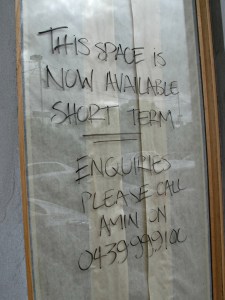 THIS SPACE IS
NOW AVAILABLE
SHORT TERM
ENQUIRIES
PLEASE CALL
AMIN ON